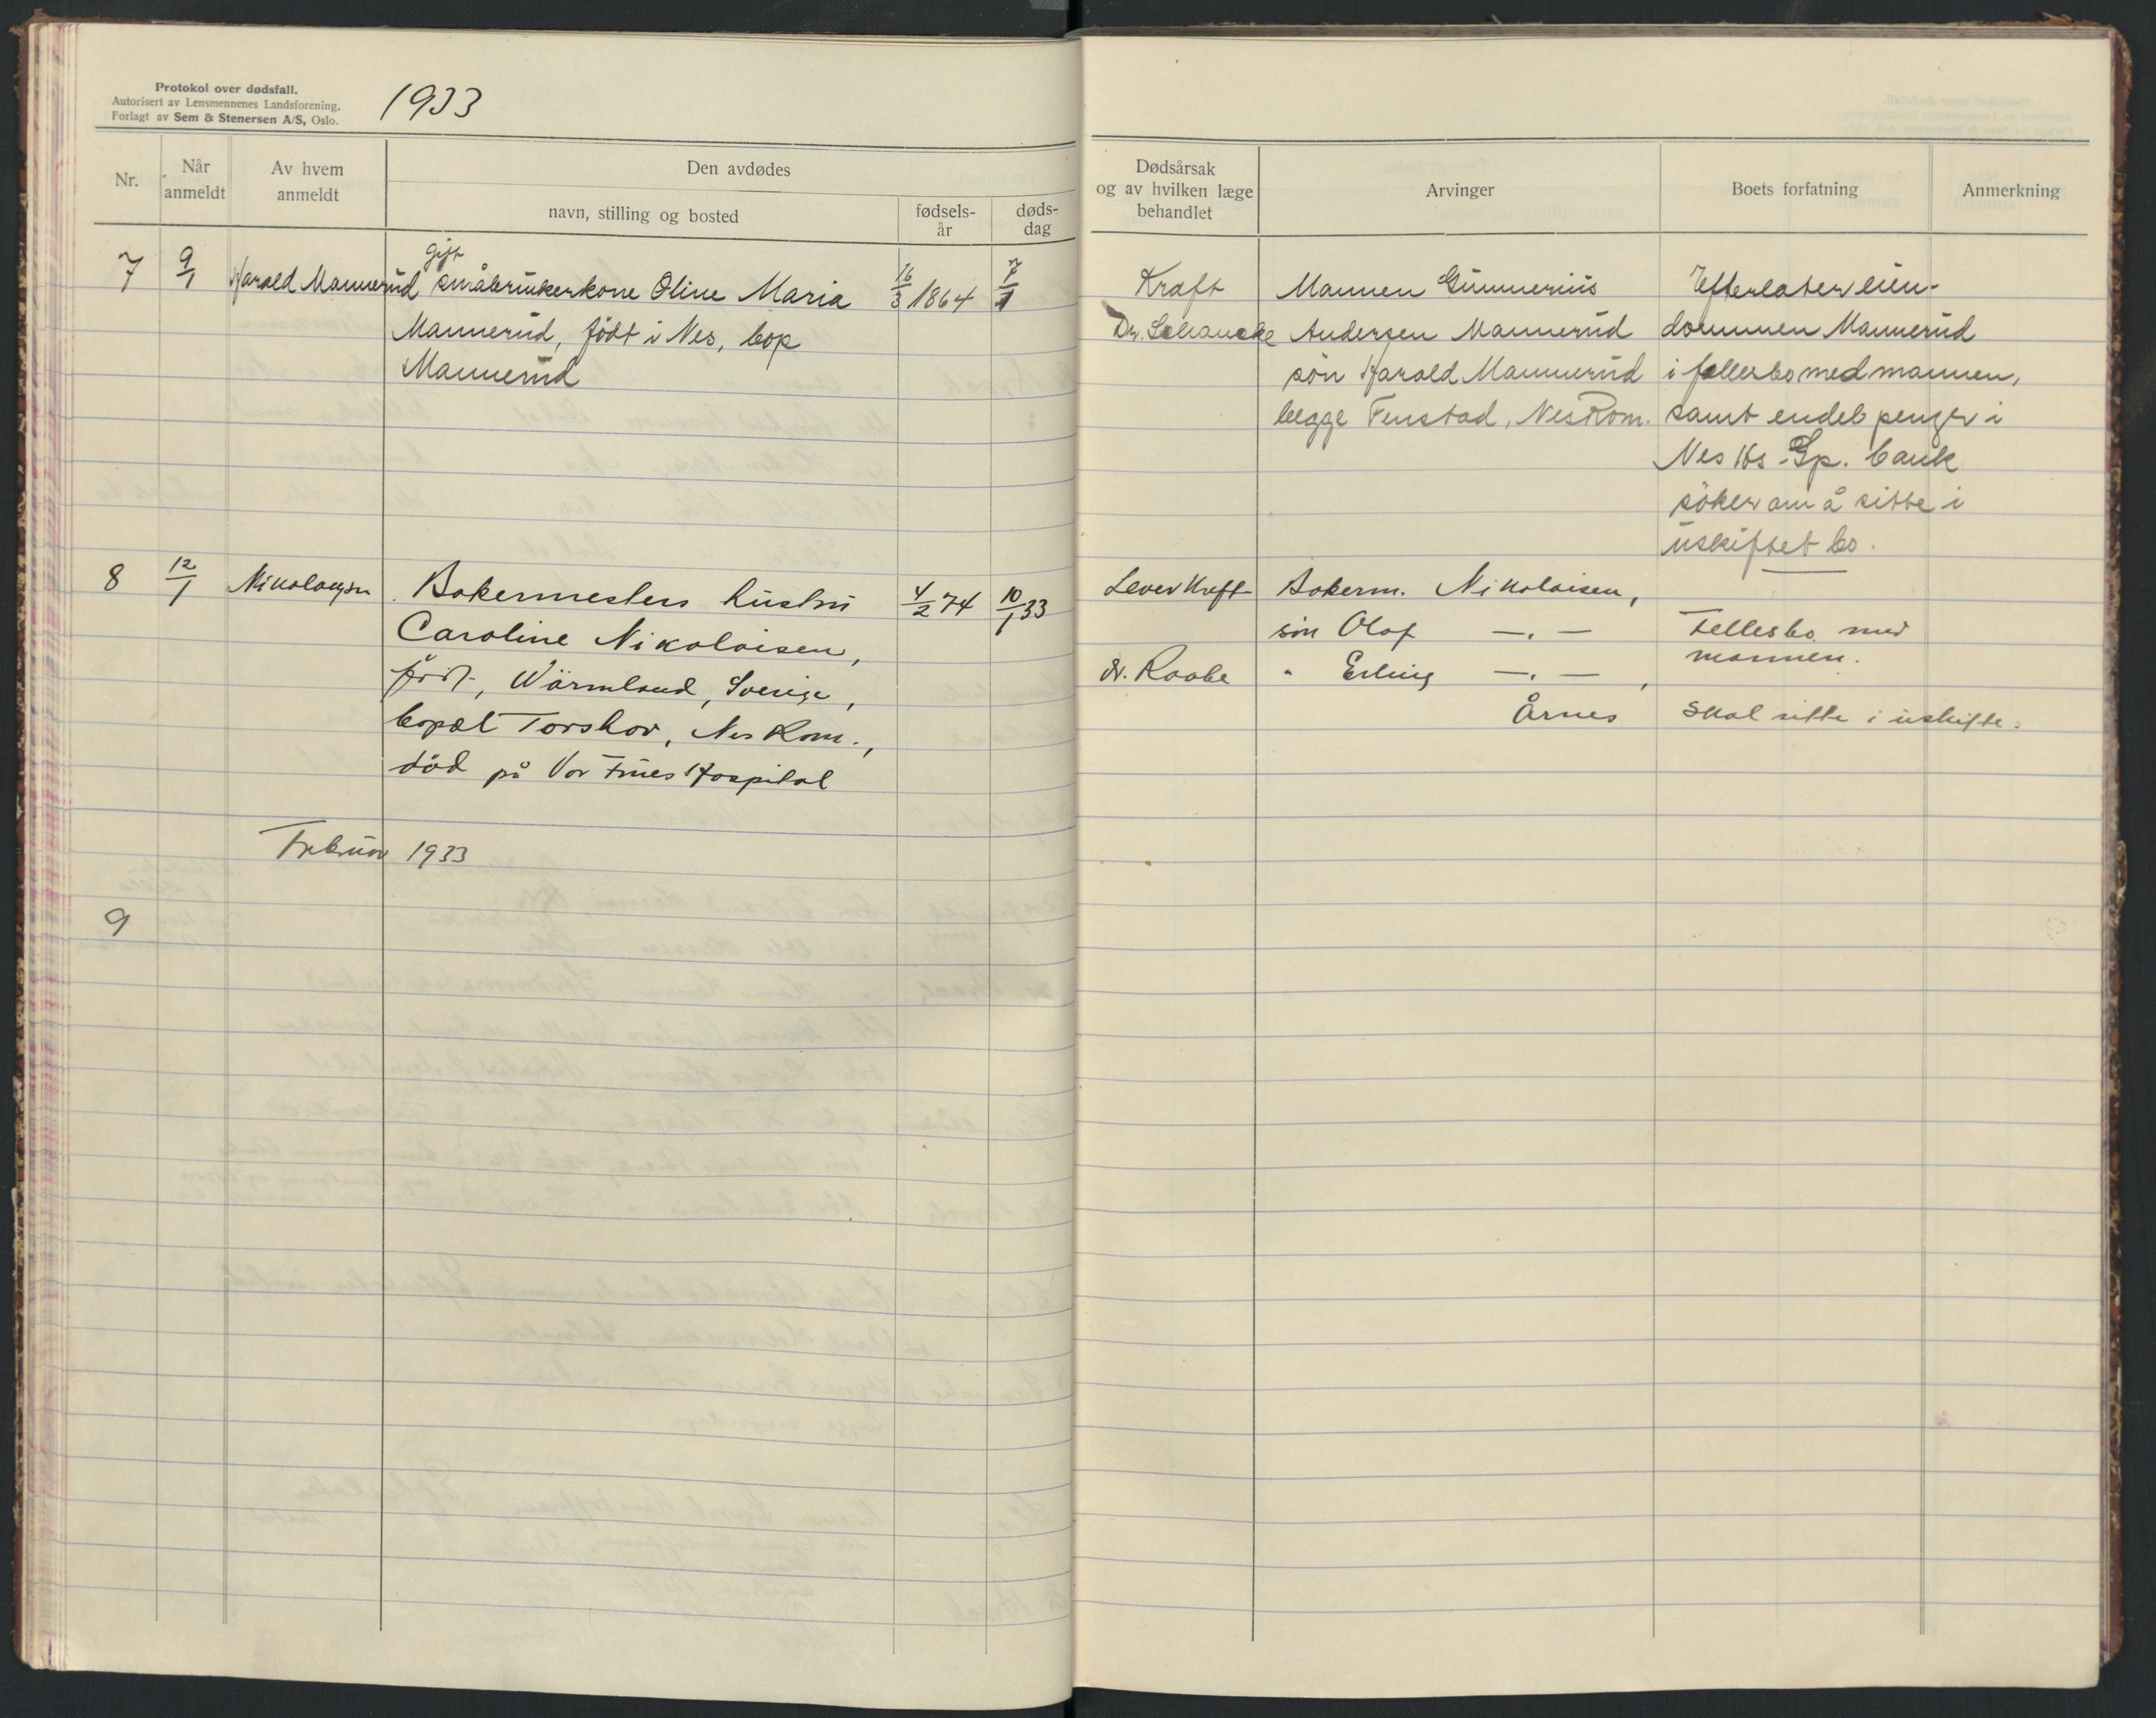 Protokol over dødsfall.
Autorisert av Lensmennenes Landsforening.
Forlagt av Sem & Stenersen A/S, Oslo.
1933
Nr.
Når anmeldt
Av hvem anmeldt
Den avdødes
navn, stilling og bosted
fødsels-år
døds-dag
7 9/1 Harald Mannerud gift småbrukerkone Oline Maria 16/3 1864 7/1
Mannerud, født i Nes, bop
Mannerud
8 12/1 Nikolaysen Bakermesters hustru 4/2 74 10/1 33
Caroline Nikolaisen,
født, Wärmland, Sverige,
bopæl Torshov, Nes Rom.,
død på Vor Frues Hospital
Februar 1933
9
Dødsårsak
og av hvilken læge
behandlet
Arvinger
Boets forfatning
Anmerkning
Kraft Mannen Gunnerius Efterlater eien-
Dr. Schancke Andersen Mannerud dommen Mannerud
søn Harald Mannerud i fellesbo med mannen,
begge Fenstad, Nes Rom. samt endel penger i
Nes Hs. Sp. bank
søker om å sitte i
uskiftet bo.
Leverkreft Bakerm. Nikolaisen,
søn Olaf —.— Fellesbo med
dr. Raabe " Erling —.—, mannen.
Årnes Skal sitte i uskifte.